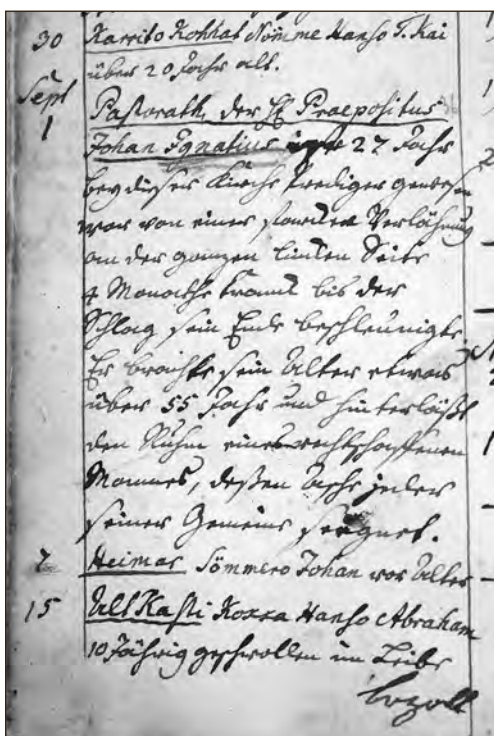 30 Karrito Kohhat Nömme Hanso T. Kai
über 20 Jahr alt.
Sept
1 Pastorath, der H. Praepositus
Johan Ignatius 27 Jahr
bey dieser Kirche Prediger gewesen
war von einer starcken Verlähmung
an der gantzen lincken Seite
4 Monathe kranck bis der
Schlag sein Ende beschleunigte.
Er brachte sein Alter etwas
über 55 Jahr und hinterläßt
den Ruhm eines rechtschaffenen
Mannes, deßen Asche jeder
seiner Gemeine seegnet.
2 Heimar Sömmero Johan vor Alter
15 Alt Kasti Hanso Abraham
10 Jährig geschwollen im Leibe